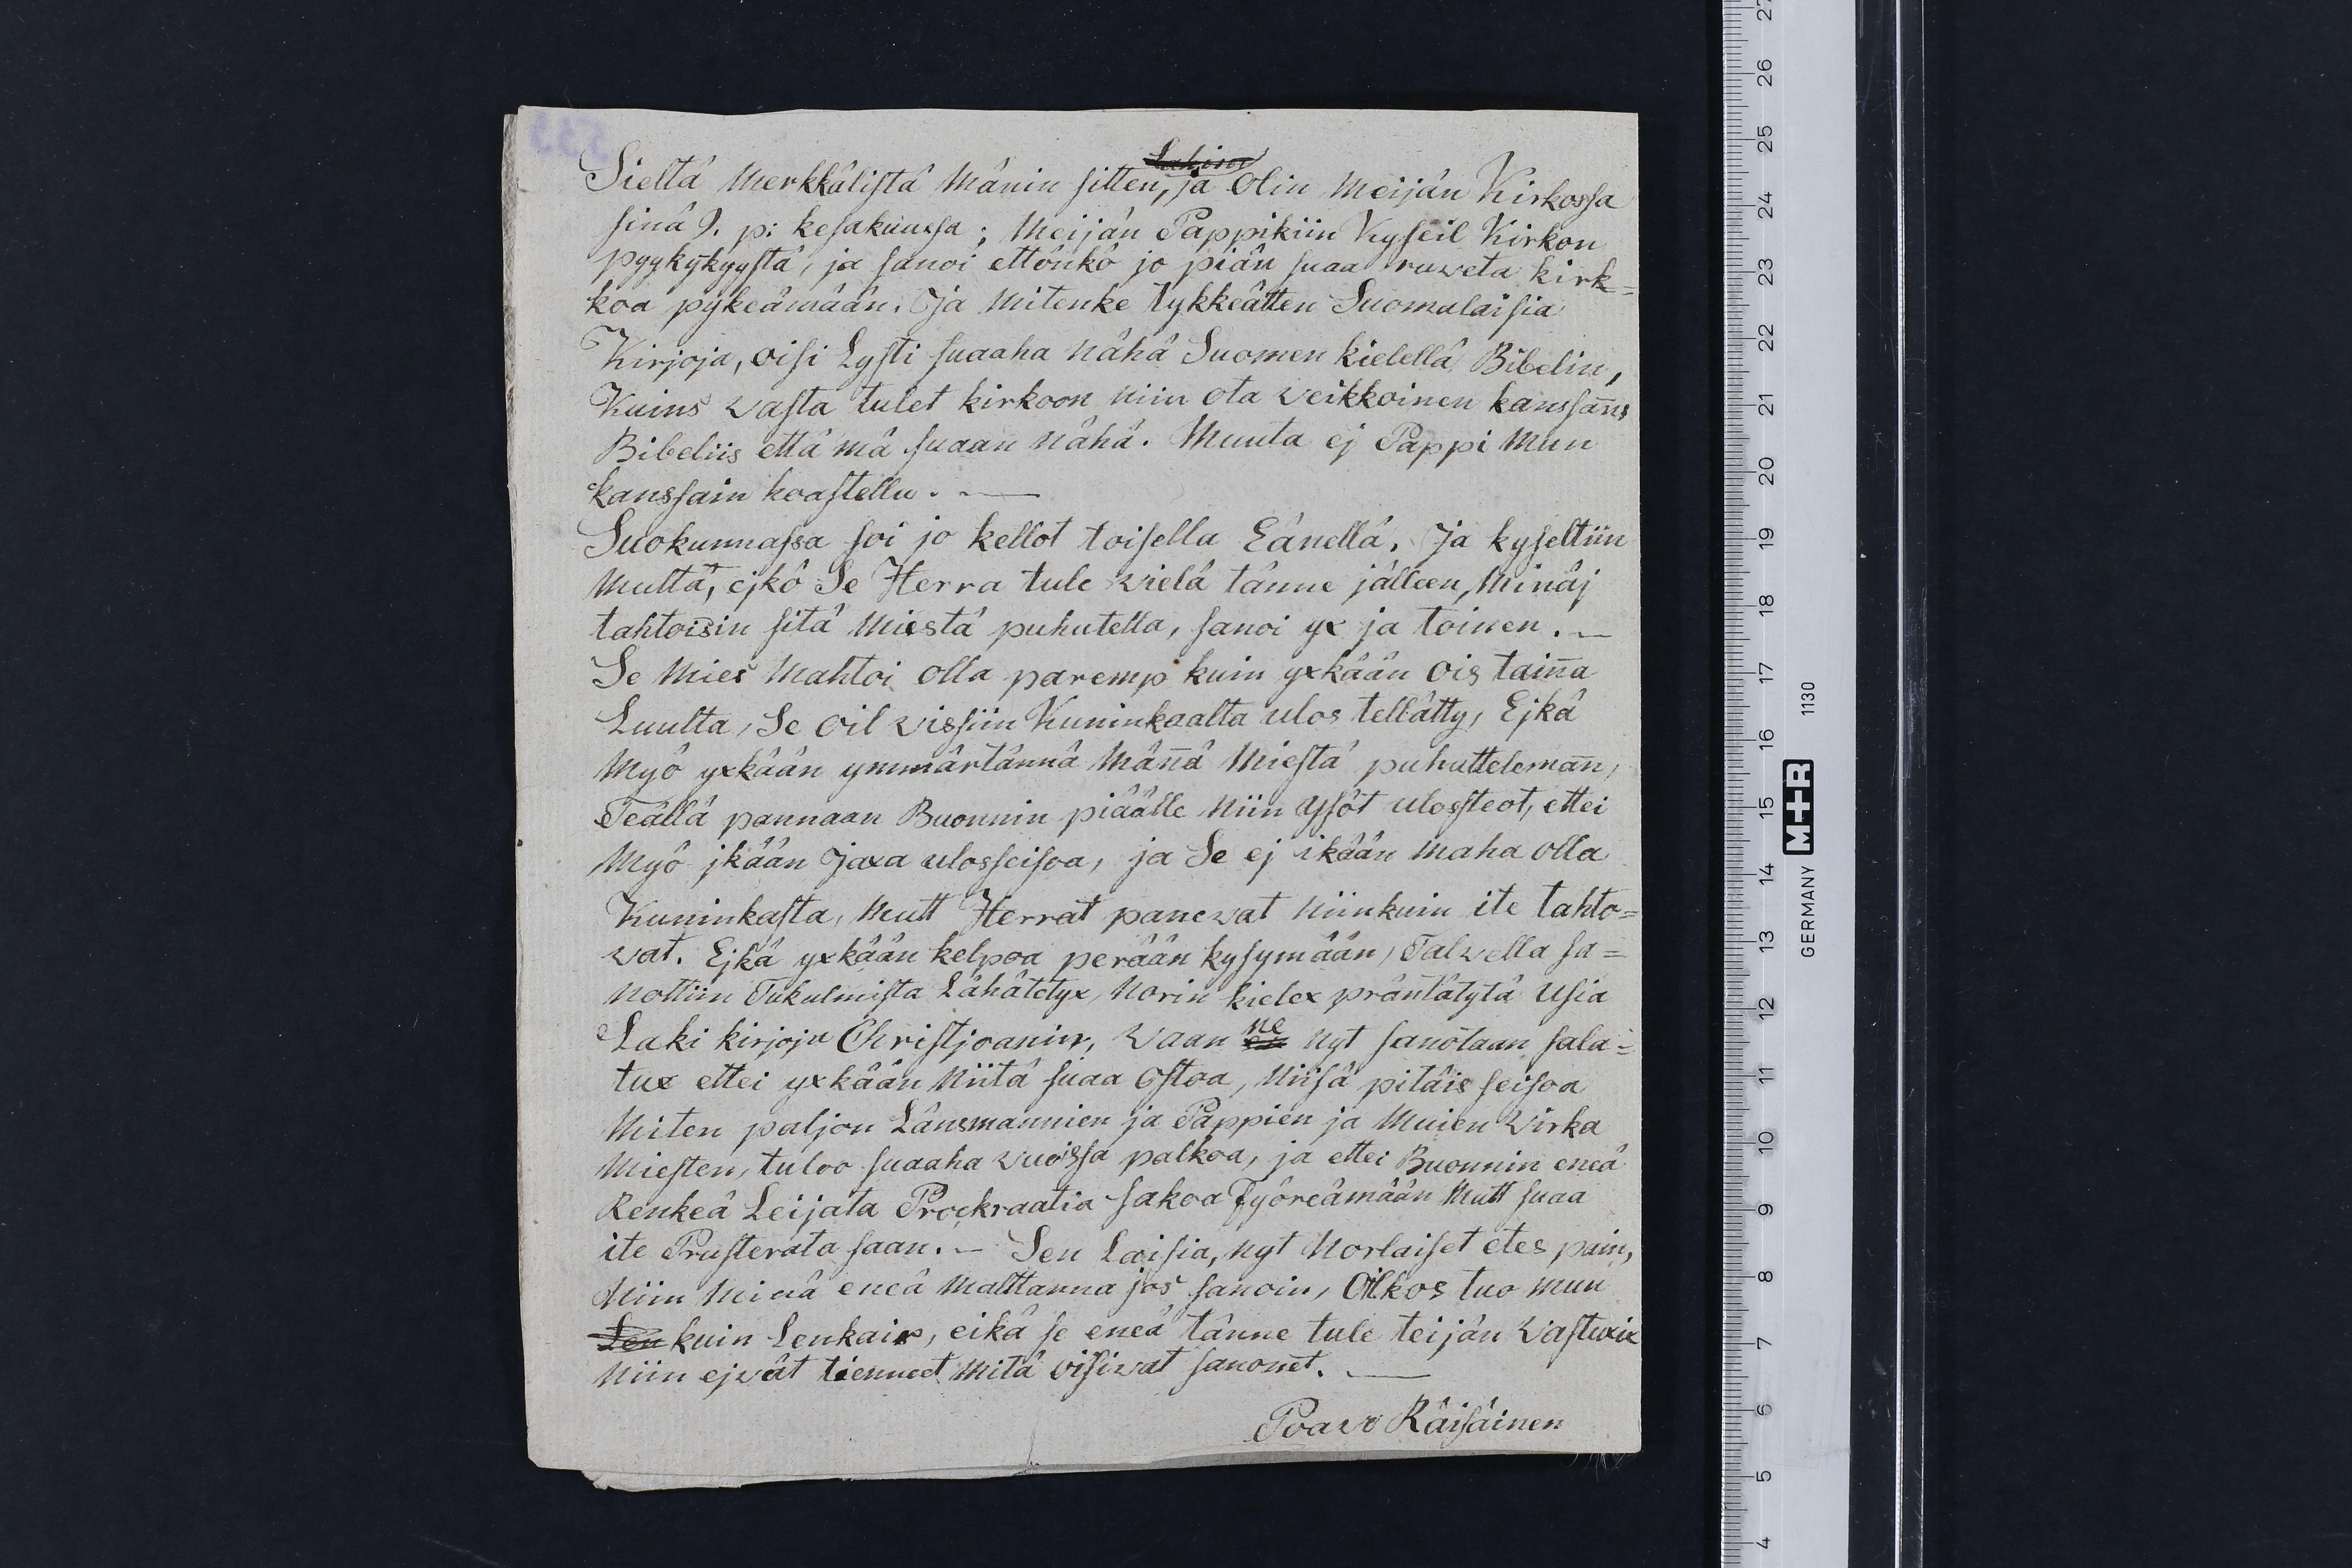 Sieltä Merkkälistä Mänin sitten, ja Olin Meijän Kirkossa
sinä 9. p: kesakuussa; Meijän Pappikiin Kyseil Kirkon
pyykykyystä, ja sanoi ettönkö jo piän suaa ruveta kirk=
koa pykeämään. Ja Mitenke tykkeätten Suomalaisia
Kirjoja, oisi Lysti suaaha Nähä Suomen kielellä Bibelin,
Kuins vasta tulet kirkoon Niin ota veikkoinen kanssan̄s
Bibeliis että mä suaan Nähä. Muuta ej Pappi Mun
kanssain hoastellu. —
Suokunnassa soi jo kellot toisella Eänellä. Ja kyseltiin
Multa, ejkö Se Herra tule vielä tänne jälleen, Minäj
tahtoisin sitä Miestä puhutella, sanoi yx ja toinen. —
Se Mies Mahtoi olla paremp kuin yxkään Ois tain̄a
Luulta, Se Oil vissiin Kuninkaalta ulos tellätty, Ejkä
Myö yxkään ymmärtännä Män̄ä Miestä puhutteleman̄,
Teällä pannaan Buonnin piäälle Niin Ysöt ulosteot, ettei
Myö jkään Jaxa ulosseisoa, ja Se ej ikään Maha olla
Kuninkasta, Mutt Herrat panevat Niinkuin ite tahto=
vat. Ejkä yxkään kelpoa perään kysymään, Talvella sa=
nottiin Tukulmista Lähätetyx, Norin kielex präntätytä Usia
Laki kirjoju Christjoaniir, Vaan ne nyt sanotaan sala=
tux ettei yxkään Niitä suaa Ostoa, Niisä pitäis seisoa
Miten paljon Länsmannien ja Pappien ja Muien Virka
Miesten, tuloo suaaha vuossa palkoa, ja ettei Buonnin eneä
Renkeä Leijata Prockraatia sakoa Fyöreämään Mutt suaa
ite Prusterata saan. — Sen Laisia, Nyt Norlaiset etes pain,
Niin Minä eneä Malttanna jos sanoin, Oilkos tuo Mun
Len kuin Lenkair, eikä se eneä tänne tule teijän Vastuxix
Niin ejvät tienneet Mitä oisivat sanonet. —
Poavo Räisäinen